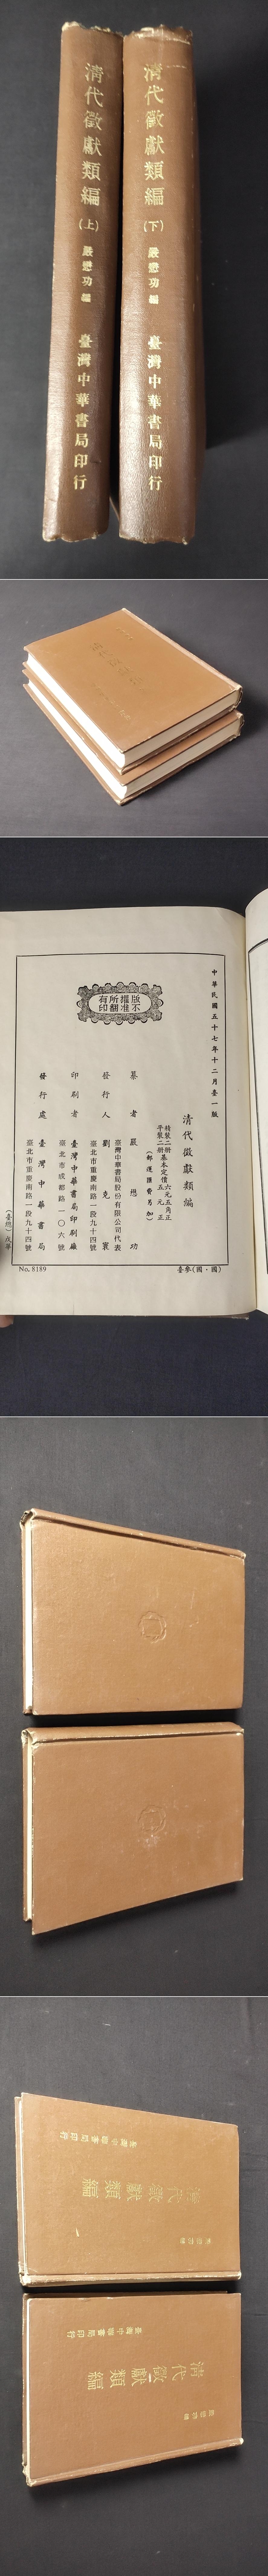 清代徵獻類編(上) 嚴懋功編 臺灣中華書局印行
清代徵獻類編(下) 嚴懋功編 臺灣中華書局印行
中華民國五十七年十二月臺一版
版權所有
不准翻印
清代徵獻類編
精裝二冊基本定價六元五角正
平裝二冊
五元正
(郵運匯費另加)
纂者 嚴懋功
臺灣中華書局股份有限公司代表
發行人 劉克寰
臺北市重慶南路一段九十四號
印刷者 臺灣中華書局印刷廠
臺北市成都路一〇六號
發行處 臺灣中華書局
臺北市重慶南路一段九十四號
No. 8189
臺參(國·國)
清代徵獻類編
臺灣中華書局印行
清代徵獻類編
臺灣中華書局印行